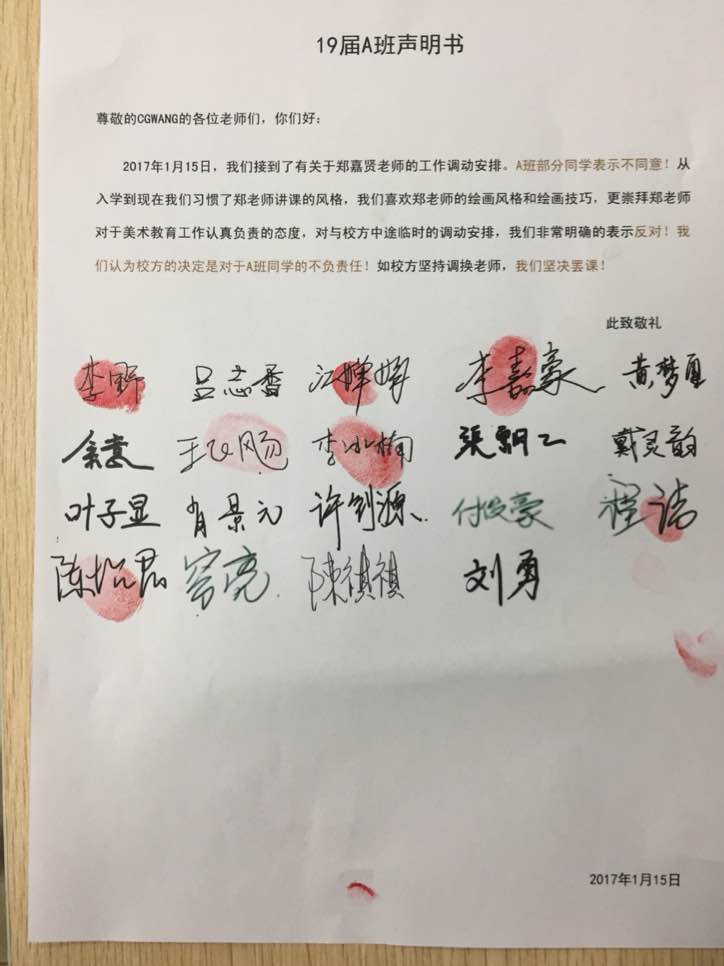 19届A班声明书
尊敬的CGWANG的各位老师们，你们好：
2017年1月15日，我们接到了有关于郑嘉贤老师的工作调动安排。A班部分同学表示不同意！从
入学到现在我们习惯了郑老师讲课的风格，我们喜欢郑老师的绘画风格和绘画技巧，更崇拜郑老师
对于美术教育工作认真负责的态度，对与校方中途临时的调动安排，我们非常明确的表示反对！我
们认为校方的决定是对于A班同学的不负责任！如校方坚持调换老师，我们坚决罢课！
此致敬礼
李野 吕志香 江婵娟 李嘉豪 黄梦圆
李小楠 张飘飞 戴灵韵
叶子显 肖景元 许剑源 付俊豪 程洁
窖亮 陈祺祺 刘勇
2017年1月15日